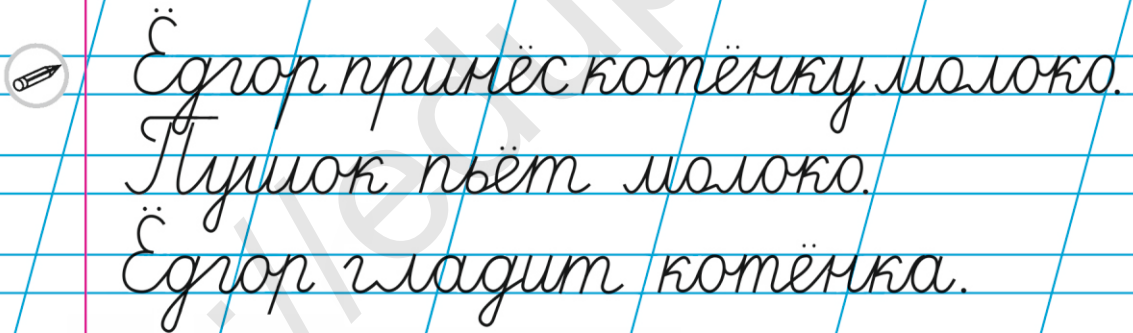 Ёдгор принёс котёнку молоко.
Пушок пьёт молоко.
Ёдгор гладит котёнка.